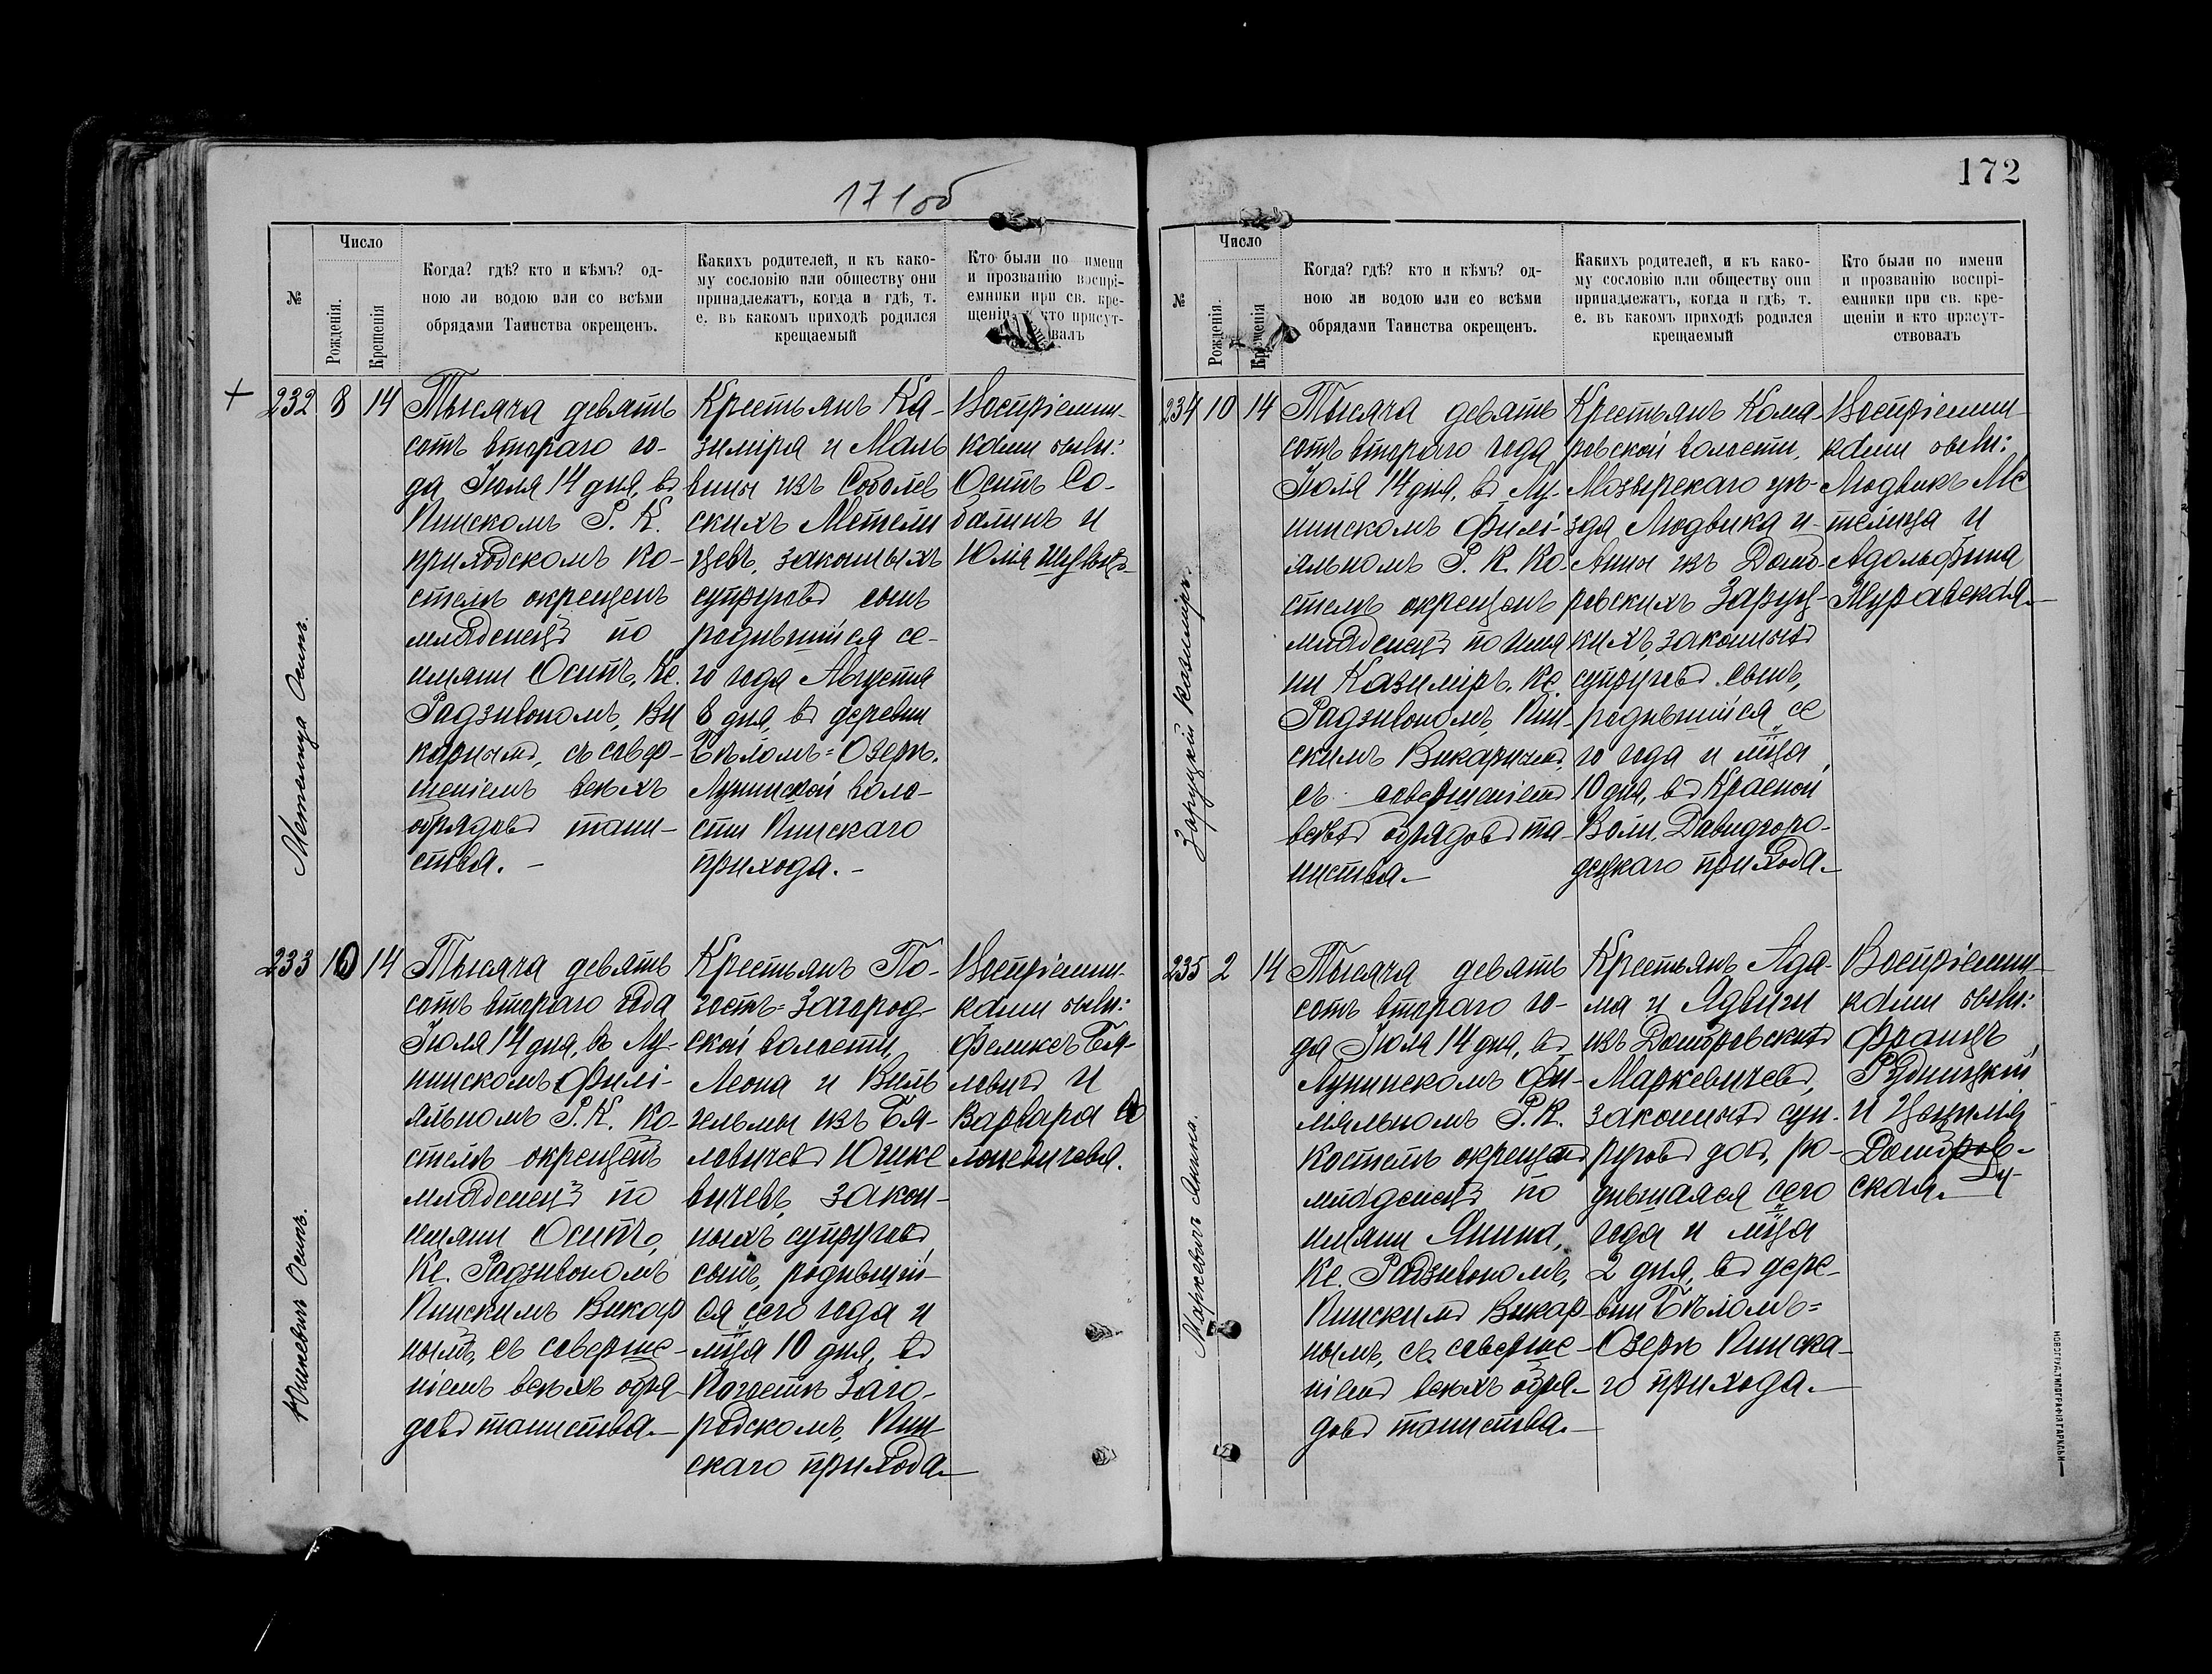 171об
№
Число
Рожденія.
Крещенія
Когда? гдѣ? кто и кѣмъ? од-
ною ли водою или со всѣми
обрядами Таинства окрещенъ.
Какихъ родителей, и къ како-
му сословію или обществу они
принадлежатъ, когда и гдѣ, т.
е. въ какомъ приходѣ родился
крещаемый
Кто были по имени
и прозванію воспрі-
емники при св. кре-
щеніи и кто присут-
валъ
+ 232 8 14
Метелица Осипъ.
Тысяча девять
сотъ втораго го-
да Іюля 14 дня, въ
Пинскомъ Р. К.
приходскомъ Ко-
стелѣ окрещенъ
младенецъ по
имяни Осипъ, Кс.
Радзивономъ, Ви
карнымъ, съ совер-
шеніемъ всѣхъ
обрядовъ таин-
ства. -
Крестьянъ Ка-
зиміра и Маль
вины изъ Соболев
скихъ Метели
цевъ, законныхъ
супруговъ сынъ
родившійся се-
го года Августа
8 дня, въ деревни
Бѣломъ=Озерѣ.
Лунинской воло-
сти Пинскаго
прихода. -
Воспріемни-
ками были:
Осипъ Со-
балинъ и
Юлія
233 10 14
Юшкевичъ Осипъ.
Тысяча девять
сотъ втораго года
Іюля 14 дня, въ Лу-
нинскомъ Филі-
яльномъ Р. К. Ко-
стелѣ окрещенъ
младенецъ по
имяни Осипъ,
Кс. Радзивономъ
Пинскимъ Викар
нымъ, съ соверше-
ніемъ всѣхъ обря-
довъ таинства.-
Крестьянъ По-
гостъ=Загород-
ской волости,
Леона и Виль
гельмы изъ Бя-
лавичевъ Юшке
вичевъ, закон-
ныхъ супруговъ
сынъ, родившій-
ся сего года и
мѣца 10 дня, въ
Погостѣ Заго-
родскомъ, Пин
скаго прихода.-
Воспріемни-
ками были:
Феликсъ Бя-
лавичъ и
Варвара
172
№
Число
Рожденія.
Крещенія
Когда? гдѣ? кто и кѣмъ? од-
ною ли водою или со всѣми
обрядами Таинства окрещенъ.
Какихъ родителей, и къ како-
му сословію или обществу они
принадлежатъ, когда и гдѣ, т.
е. въ какомъ приходѣ родился
крещаемый
Кто были по имени
и прозванію воспрі-
емники при св. кре-
щеніи и кто присут-
ствовалъ
234 10 14
Заруцкій Казиміръ.
Тысяча девять
сотъ втораго года
Іюля 14 дня, въ Лу-
нинскомъ Филі-
яльномъ Р. К. Ко-
стелѣ окрещенъ
младенецъ по имя
ни Казиміръ. Кс.
Радзивономъ, Пин-
скимъ Викарнымъ,
съ совершеніемъ
всѣхъ обрядовъ та-
инства.-
Крестьянъ Кома-
ровской волости,
Мозырскаго уѣ-
зда Людвика и
Анны изъ Домб-
ровскихъ Заруц-
кихъ, законныхъ
супруговъ сынъ,
родившійся се
го года и мѣца
10 дня, въ Красной
Воли, Давидгоро-
децкаго прихода.-
Воспріемни-
ками были:
Людвикъ Ме
телица и
Адольфина
Журавская.-
235 2 14
Маркевичъ Янина.
Тысяча девять
сотъ втораго го-
да Іюля 14 дня, въ
Лунинскомъ Фи-
ліяльномъ Р. К.
Костелѣ окрещенъ
младенецъ по
имяни Янина,
Кс. Радзивономъ,
Пинскимъ Викар-
нымъ, съ соверше-
ніемъ всѣхъ обря-
довъ таинства.-
Крестьянъ Ада-
ма и Ядвиги
изъ Домбровскихъ
Маркевичевъ,
законныхъ суп-
руговъ дочь, ро-
дившаяся сего
года и мѣца
2 дня, въ дере-
вни Бѣломъ=
Озерѣ Пинска-
го прихода.-
Воспріемни-
ками были:
Францъ
Рудницкій
и Цецилія
Домбров-
ская.-